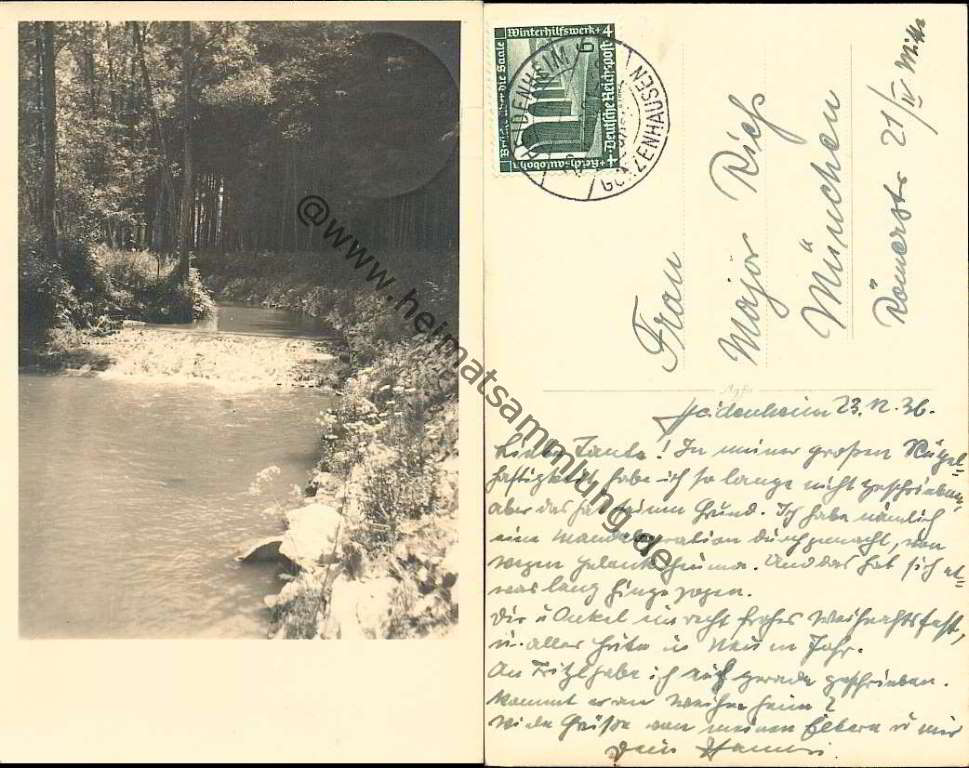 Winterhilfswerk+4
6
Deutsche Reichspost
Reichsautobahn
Brücke die Saale
HEIDENHEIM
GUNZENHAUSEN
Frau
Major Rieß
München
Römerstr 21/IV Mitte
@www.heimatsammlung.de
Agfa
Heidenheim 23.12.36.
Liebe Tante! In meiner großen
haftigkeit habe ich so lange nicht geschrieben,
aber das hat seinen Grund. Ich habe nämlich
eine Mandeloperation durchgemacht, von
wegen Gelenkrheuma. Und das hat sich et=
was lang hingezogen.
Dir u Onkel ein recht frohes Weihnachtsfest,
u. alles Gute im Neuen Jahr.
An Fritzl habe ich auch gerade geschrieben.
Kommt er an Weihn. heim?
Viele Grüße von meinen Eltern u mir
Dein